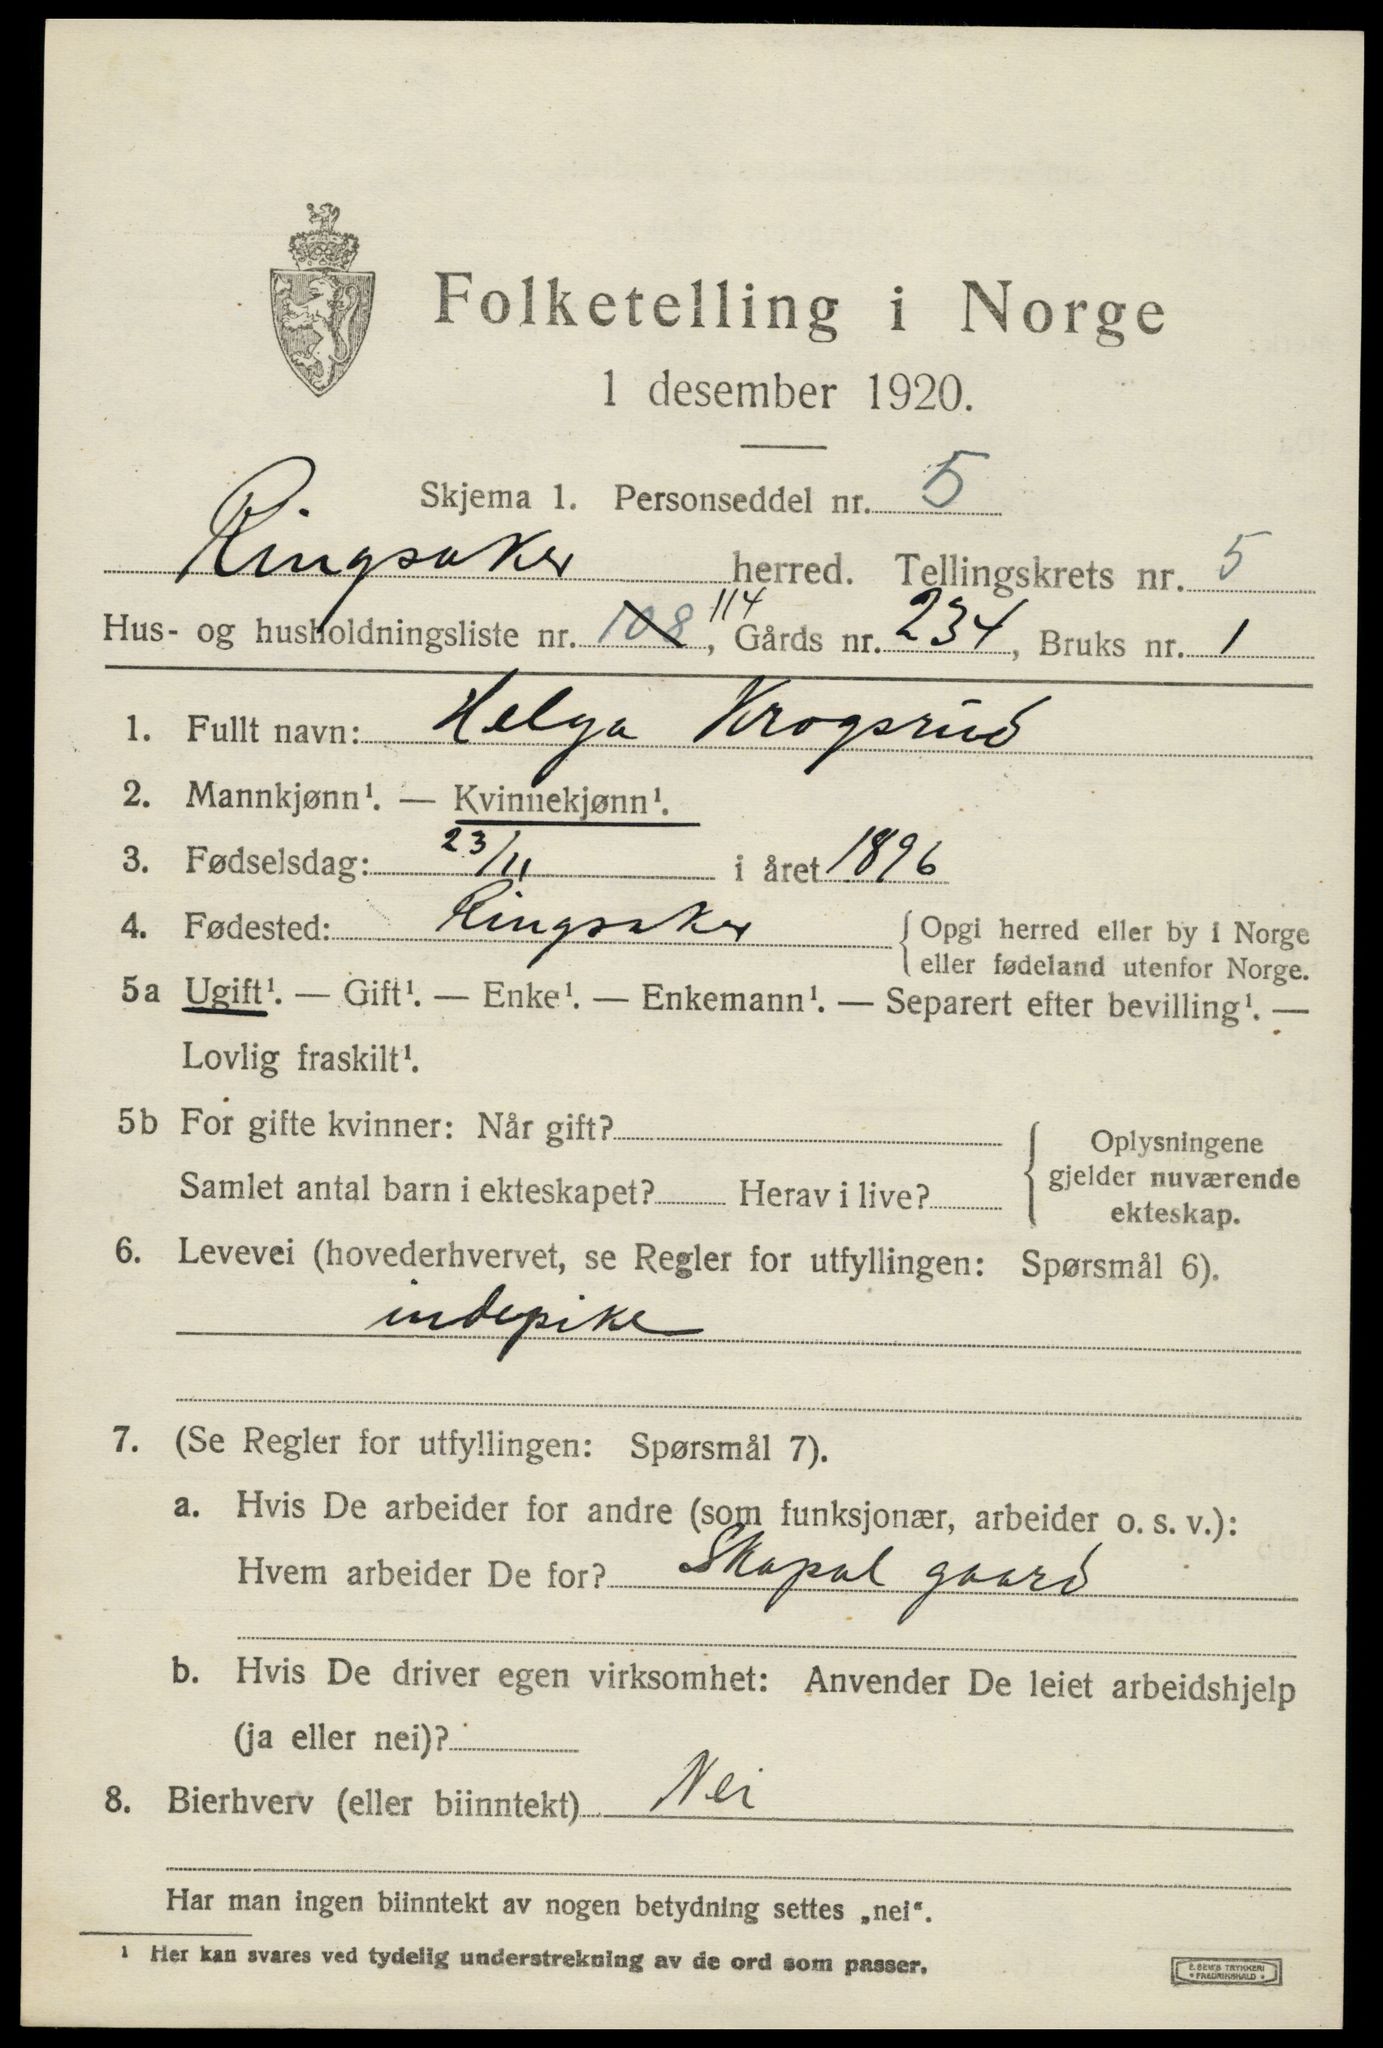 Folketelling i Norge
1 desember 1920.
Skjema 1. Personseddel nr. 5
Ringsaker herred. Tellingskrets nr. 5
Hus- og husholdningsliste nr. 108 114, Gårds nr. 234, Bruks nr. 1
1. Fullt navn: Helga Krogsrud
2. Mannkjønn¹. — Kvinnekjønn¹.
3. Fødselsdag: 23/11 i året 1896
4. Fødested: Ringsaker { Opgi herred eller by i Norge
eller fødeland utenfor Norge.
5a Ugift¹. — Gift¹. — Enke¹. — Enkemann¹. — Separert efter bevilling¹. —
Lovlig fraskilt¹.
5b For gifte kvinner: Når gift?
Samlet antal barn i ekteskapet? Herav i live?
{ Oplysningene
gjelder nuværende
ekteskap.
6. Levevei (hovederhvervet, se Regler for utfyllingen: Spørsmål 6).
indepike
7. (Se Regler for utfyllingen: Spørsmål 7).
a. Hvis De arbeider for andre (som funksjonær, arbeider o. s. v.):
Hvem arbeider De for? Skapal gaard
b. Hvis De driver egen virksomhet: Anvender De leiet arbeidshjelp
(ja eller nei)?
8. Bierhverv (eller biinntekt) Nei
Har man ingen biinntekt av nogen betydning settes „nei“.
¹ Her kan svares ved tydelig understrekning av de ord som passer.
E. SEM'S TRYKKERI
* FREDRIKSHALD *